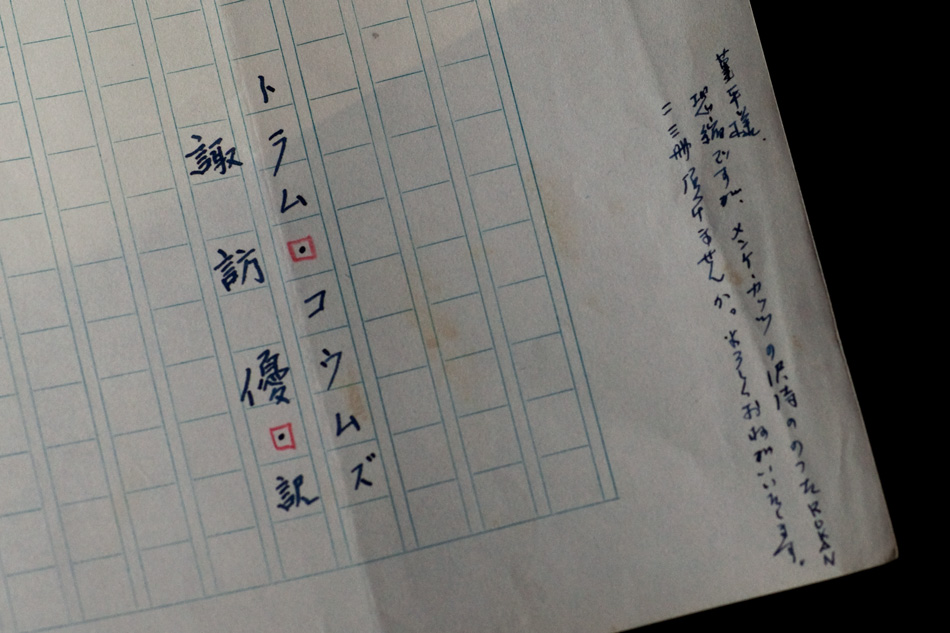 様.
恐縮ですが、メンケ・カッツの訳詩ののったROKAN
二三冊頂けませんか。よろしくおねがいいたします。
トラム・コウムズ
諏訪優・訳